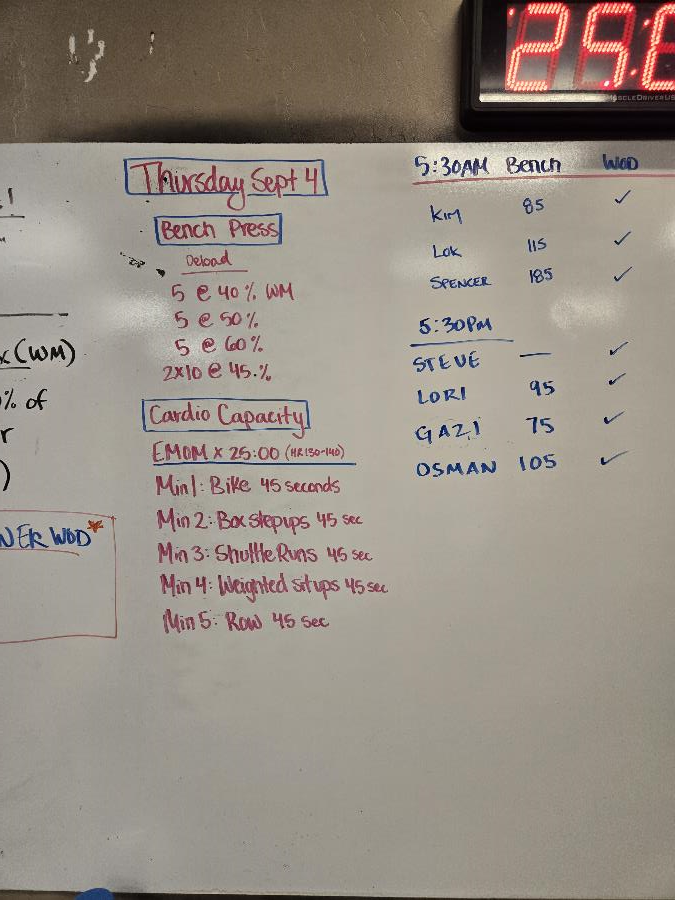 Thursday Sept 4
Bench Press
Deload
5 @ 40% WM
5 @ 50%
5 @ 60%
2x10 @ 45.%
Cardio Capacity
EMOM x 25:00 (HR 130-140)
Min 1: Bike 45 seconds
Min 2: Box step ups 45 sec
Min 3: Shuttle Runs 45 sec
Min 4: Weighted situps 45 sec
Min 5: Row 45 sec
5:30AM Bench WOD
Kim 85 ✓
Lok 115 ✓
SPENCER 185 ✓
5:30PM
STEVE — ✓
LORI 95 ✓
GAZI 75 ✓
OSMAN 105 ✓
(WM)
% of
r
)
NER WOD*
MUSCLEDRIVERUS